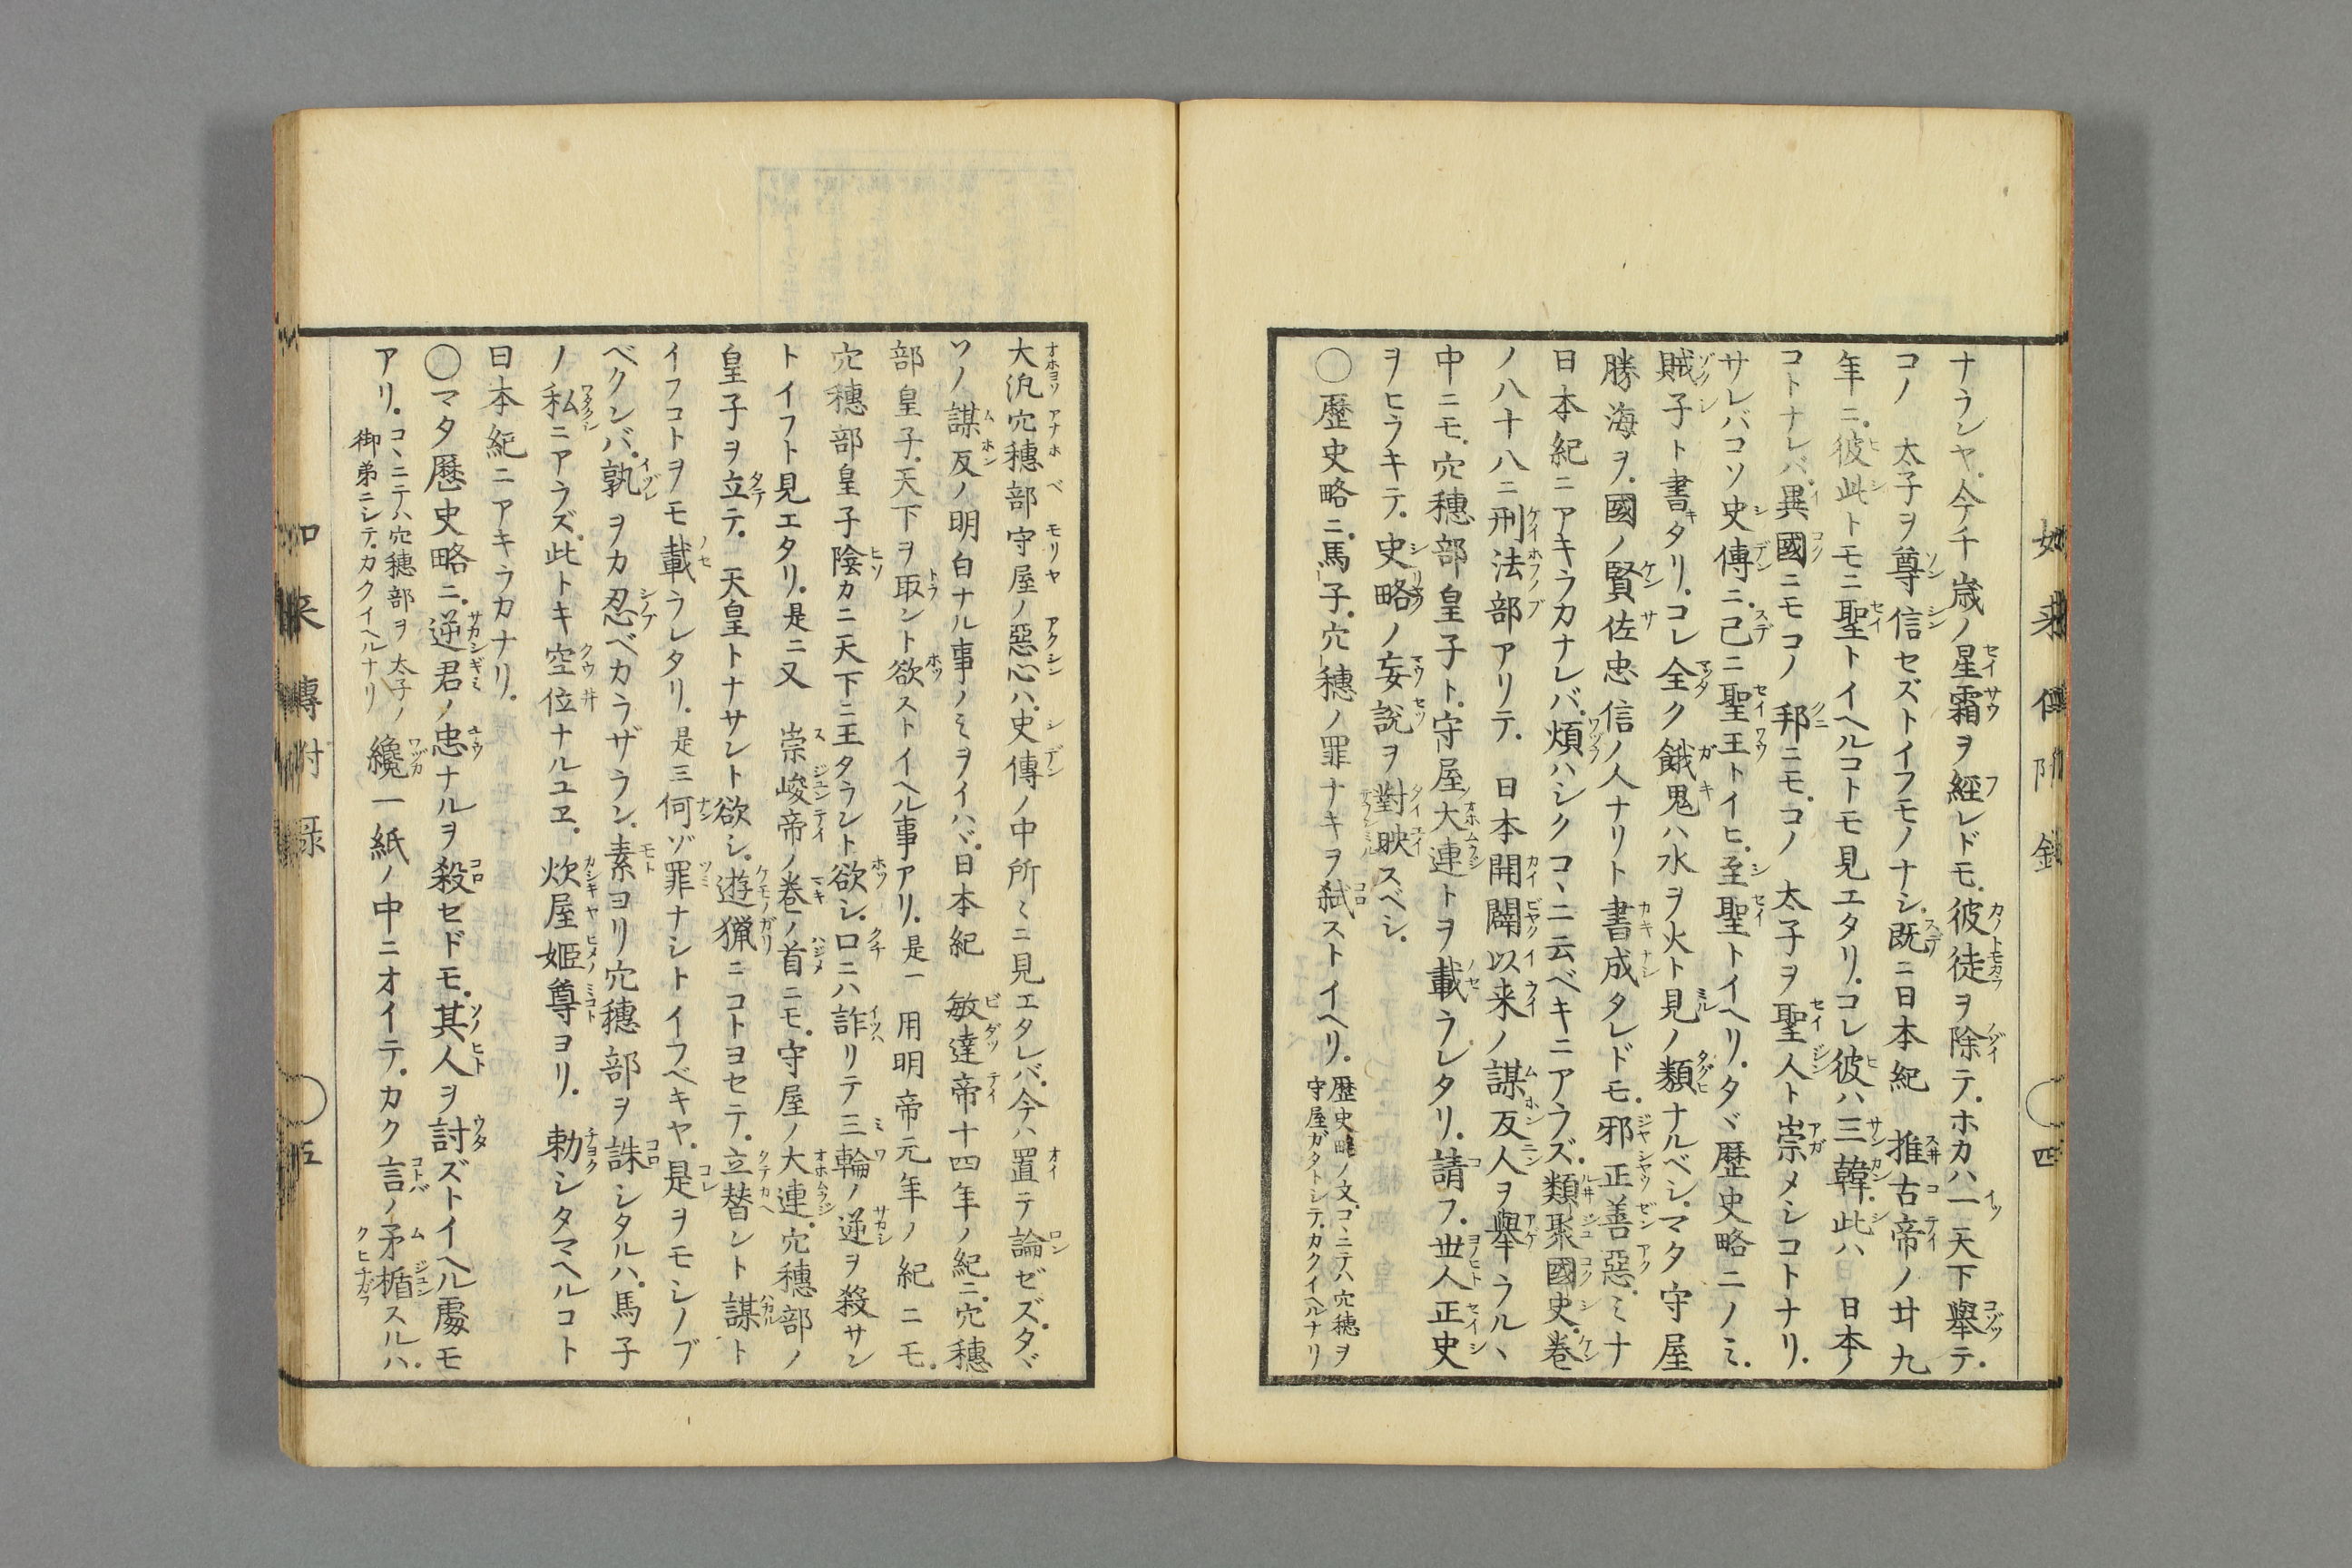 如来傳附録
四
ナランヤ。今千歳ノ星霜ヲ經レドモ。彼徒ヲ除テ。ホカハ一天下擧テ。
コノ　太子ヲ尊信セズトイフモノナシ。既ニ日本紀　推古帝ノ廿九
年ニ。彼此トモニ聖トイヘルコトモ見エタリ。コレ彼ハ三韓。此ハ日本ノ
コトナレバ。異國ニモコノ　邦ニモ。コノ　太子ヲ聖人ト崇メシコトナリ。
サレバコソ史傳ニ。己ニ聖王トイヒ。至聖トイヘリ。タヾ歴史略ニノミ。
賊子ト書タリ。コレ全ク餓鬼ハ水ヲ火ト見ノ類ナルベシ。マタ守屋
勝海ヲ。國ノ賢佐忠信ノ人ナリト書成タレドモ。邪正善惡。ミナ
日本紀ニアキラカナレバ。煩ハシクコヽニ云ベキニアラズ。類聚國史。巻
ノ八十八ニ刑法部アリテ。　日本開闢以来ノ謀反人ヲ擧ラルヽ
中ニモ。穴穗部皇子ト。守屋大連トヲ載ラレタリ。請フ。世人正史
ヲヒラキテ。史略ノ妄説ヲ對映スベシ。
〇歴史略ニ。馬子。穴穗ノ罪ナキヲ弑ストイヘリ。歴史略ノ文。コヽニテハ穴穗ヲ
守屋ガタトシテ。カクイヘルナリ
大汎穴穗部守屋ノ惡心ハ。史傳ノ中所〻ニ見エタレバ。今ハ置テ論ゼズ。タヾ
ソノ謀反ノ明白ナル事ノミヲイハヾ。日本紀　敏達帝十四年ノ紀ニ。穴穗
部皇子。天下ヲ取ント欲ストイヘル事アリ。是一　用明帝元年ノ紀ニモ。
穴穗部皇子陰カニ天下ニ王タラント欲シ。口ニハ詐リテ三輪ノ逆ヲ殺サン
トイフト見エタリ。是ニ又　崇峻帝ノ巻ノ首ニモ。守屋ノ大連。穴穗部ノ
皇子ヲ立テ。　天皇トナサント欲シ。遊猟ニコトヨセテ。立替ント謀ト
イフコトヲモ載ラレタリ。是三何ゾ罪ナシトイフベキヤ。是ヲモシノブ
ベクンバ。孰ヲカ忍ベカラザラン。素ヨリ穴穗部ヲ誅シタルハ。馬子
ノ私ニアラズ。此トキ空位ナルユヱ。　炊屋姫尊ヨリ。　勅シタマヘルコト
日本紀ニアキラカナリ。
〇マタ歴史略ニ。逆君ノ忠ナルヲ殺セドモ。其人ヲ討ズトイヘル處モ
アリ。コヽニテハ穴穗部ヲ　太子ノ
御弟ニシテ。カクイヘルナリ　纔一紙ノ中ニオイテ。カク言ノ矛楯スルハ。
如来傳附録
五